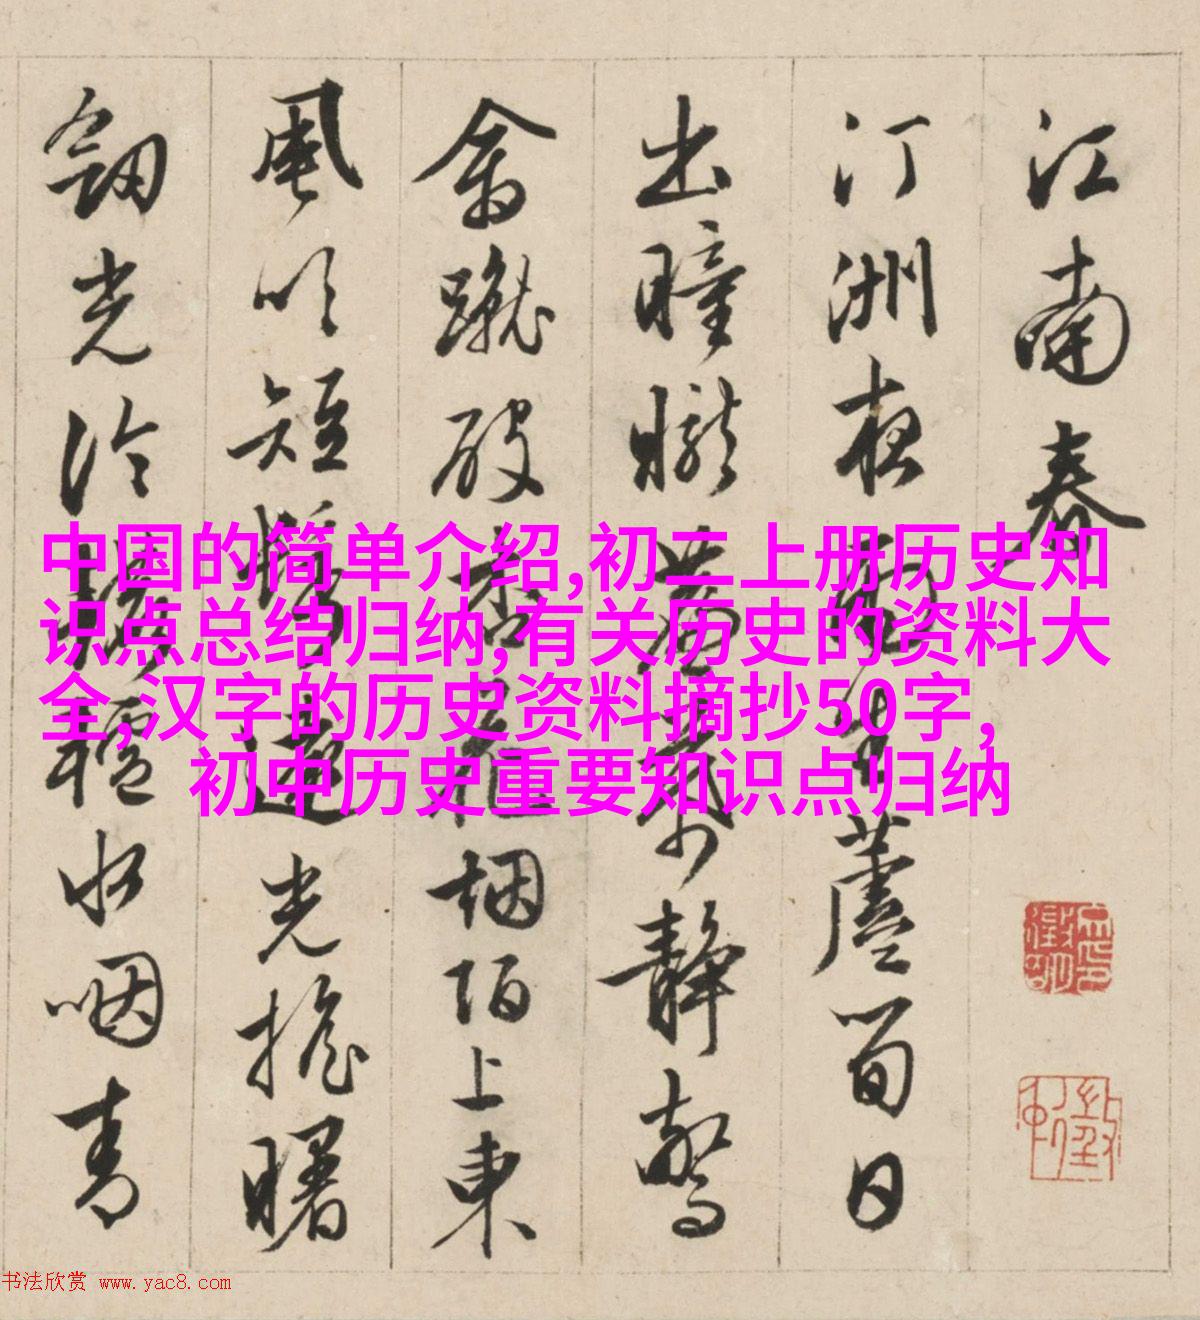 江南春
汀洲夜雨生蘆筍日
出曈曨簾幕靜驚
禽蹴破杏烟陌上東
風吹短光搖曙
劒光冷水咽青
中国的简单介绍,初二上册历史知
识点总结归纳,有关历史的资料大
全,汉字的历史资料摘抄50字,
初中历史重要知识点归纳
书法欣赏 www.yac8.com